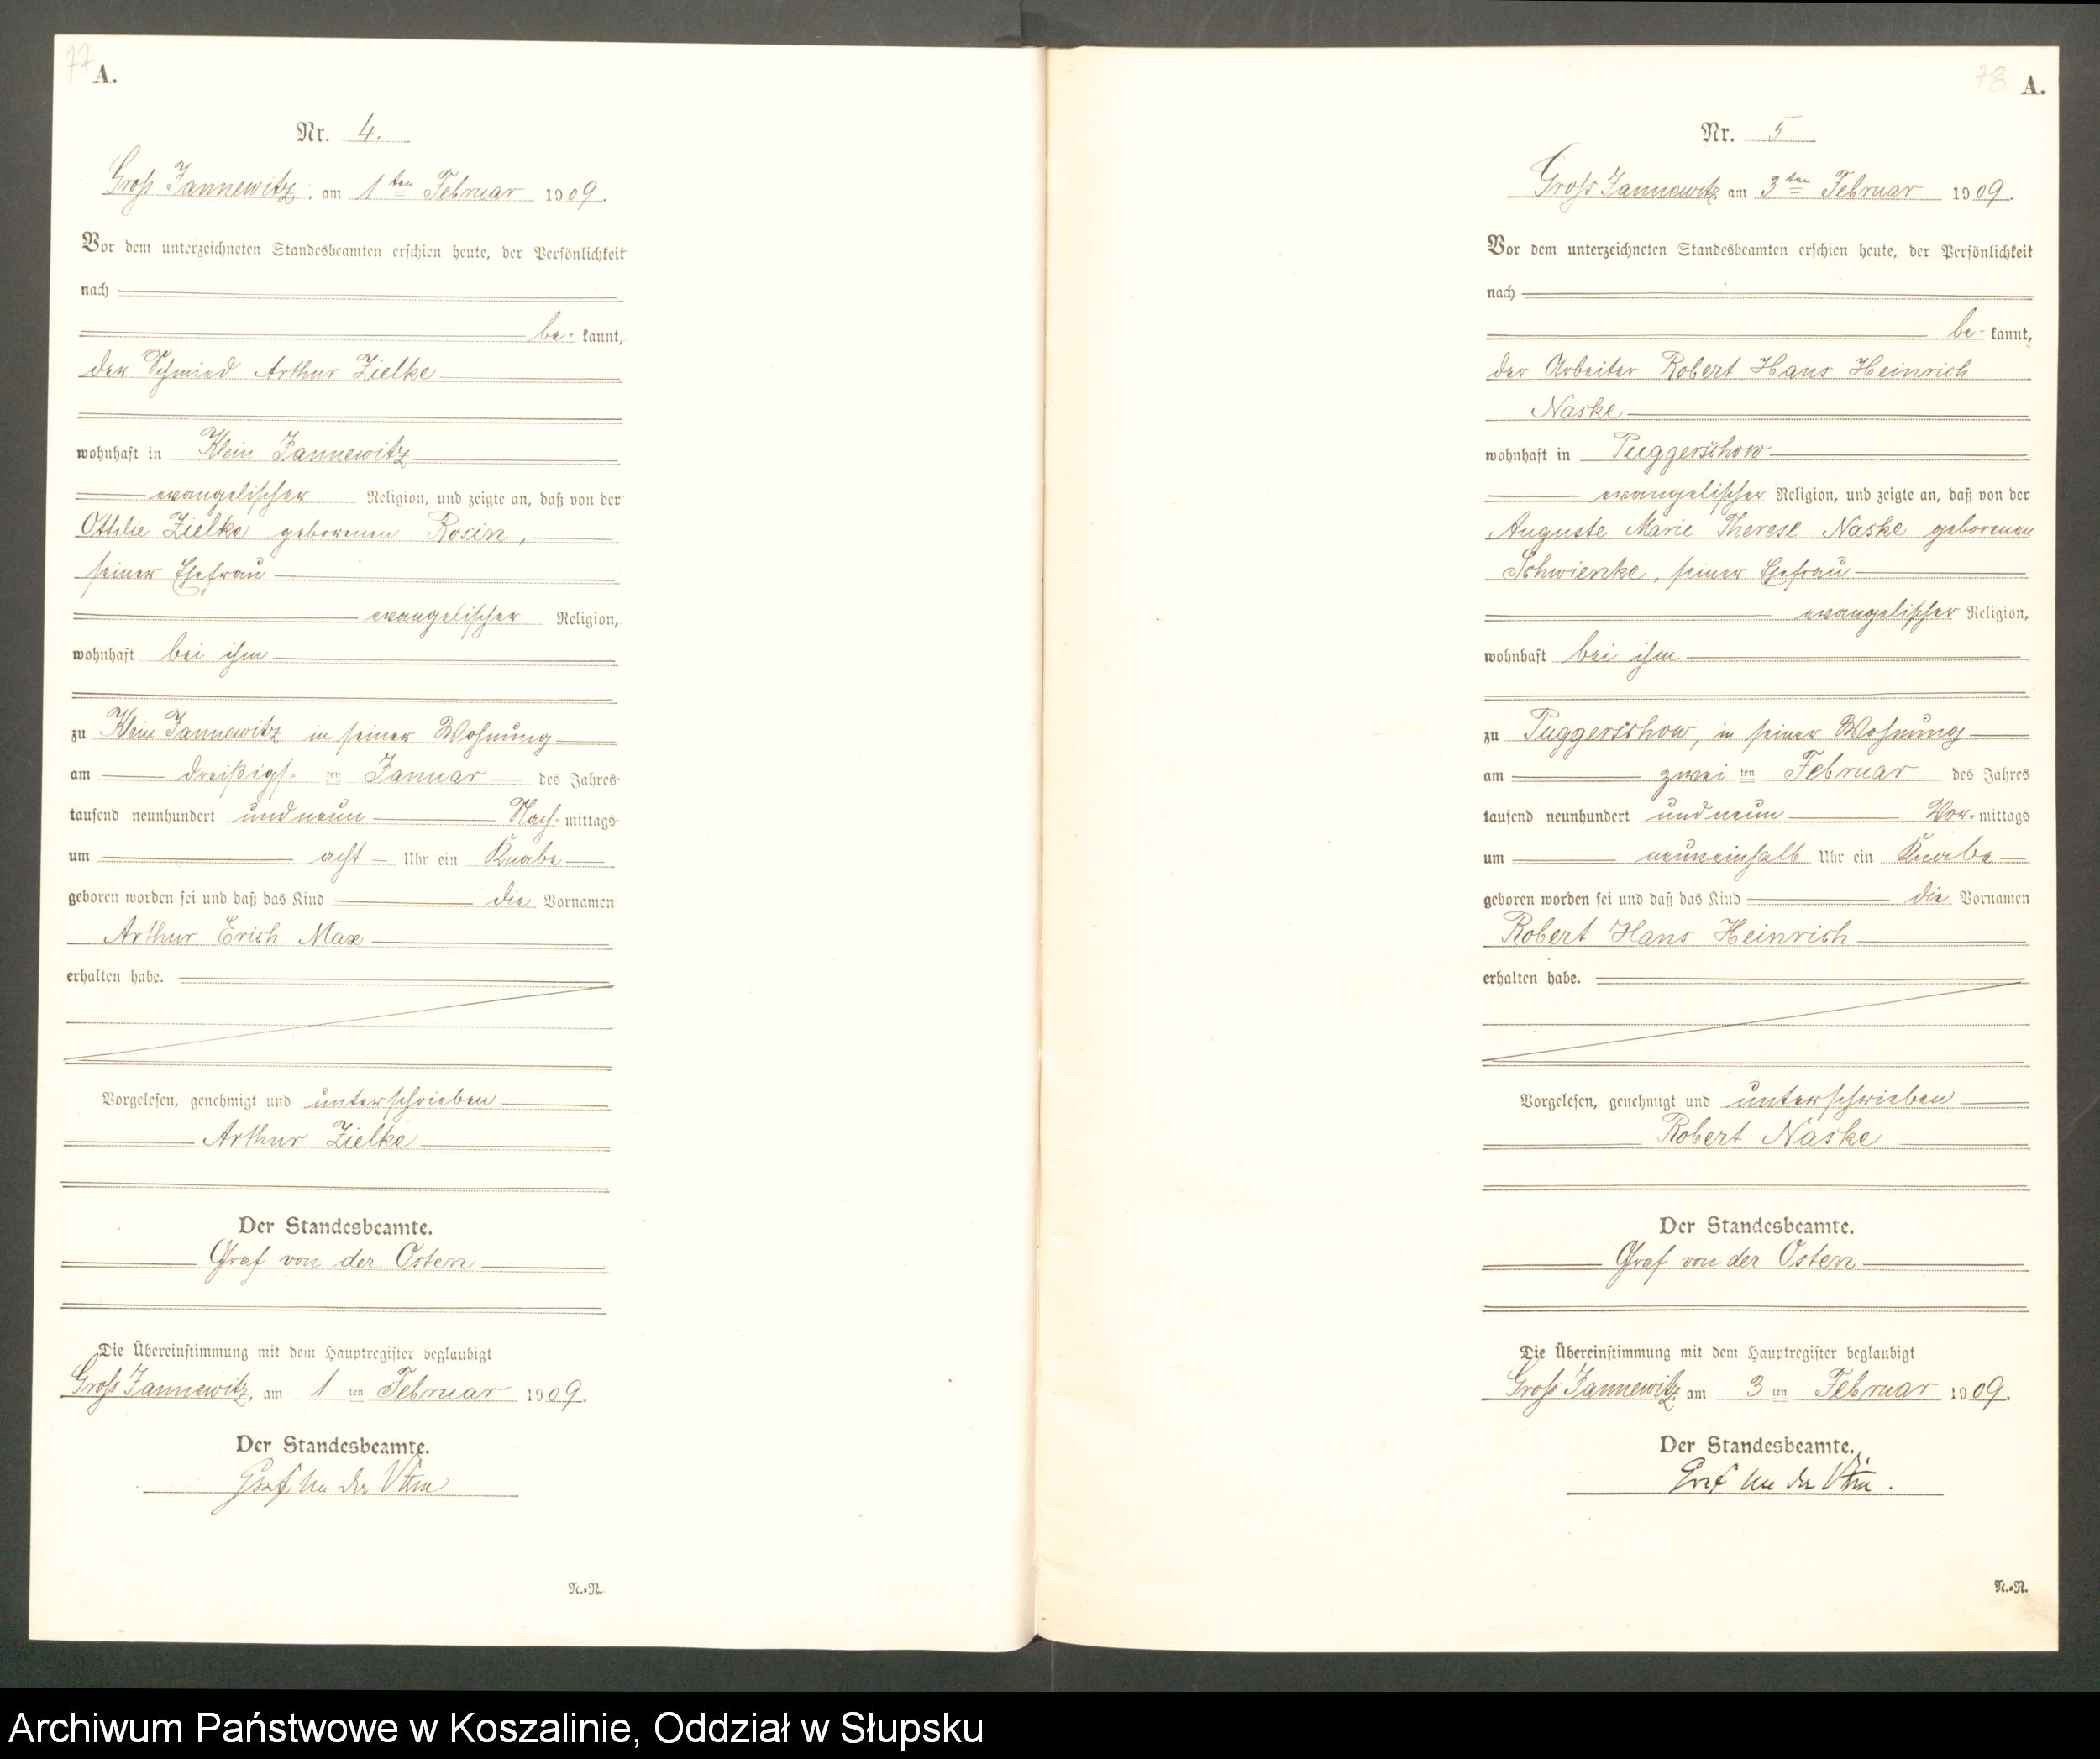 77
A.
Nr. 4.
Groß Jannewitz, am 1ten Februar 1909.
Vor dem unterzeichneten Standesbeamten erschien heute, der Persönlichkeit
nach
be- kannt,
der Schmied Arthur Zielke
wohnhaft in Klein Jannewitz
evangelischer Religion, und zeigte an, daß von der
Ottilie Zielke geborenen Rosin,
seiner Ehefrau
evangelischer Religion,
wohnhaft bei ihm
zu Klein Jannewitz in seiner Wohnung
am dreißigs- ten Januar des Jahres
tausend neunhundert und neun Nach- mittags
um acht Uhr ein Knabe
geboren worden sei und daß das Kind die Vornamen
Arthur Erich Max
erhalten habe.
Vorgelesen, genehmigt und unterschrieben
Arthur Zielke
Der Standesbeamte.
Graf von der Osten
Die Übereinstimmung mit dem Hauptregister beglaubigt
Groß Jannewitz, am 1 ten Februar 1909.
Der Standesbeamte.
Graf von der Osten
N.-R.
78
A.
Nr. 5
Groß Jannewitz, am 3ten Februar 1909.
Vor dem unterzeichneten Standesbeamten erschien heute, der Persönlichkeit
nach
be- kannt,
der Arbeiter Robert Hans Heinrich
Naske
wohnhaft in Puggerschow
evangelischer Religion, und zeigte an, daß von der
Auguste Marie Therese Naske geborenen
Schwienke, seiner Ehefrau
evangelischer Religion,
wohnhaft bei ihm
zu Puggerschow, in seiner Wohnung
am zwei ten Februar des Jahres
tausend neunhundert und neun Vor- mittags
um neuneinhalb Uhr ein Knabe
geboren worden sei und daß das Kind die Vornamen
Robert Hans Heinrich
erhalten habe.
Vorgelesen, genehmigt und unterschrieben
Robert Naske
Der Standesbeamte.
Graf von der Osten
Die Übereinstimmung mit dem Hauptregister beglaubigt
Groß Jannewitz, am 3 ten Februar 1909.
Der Standesbeamte.
Graf von der Osten.
N.-R.
Archiwum Państwowe w Koszalinie, Oddział w Słupsku